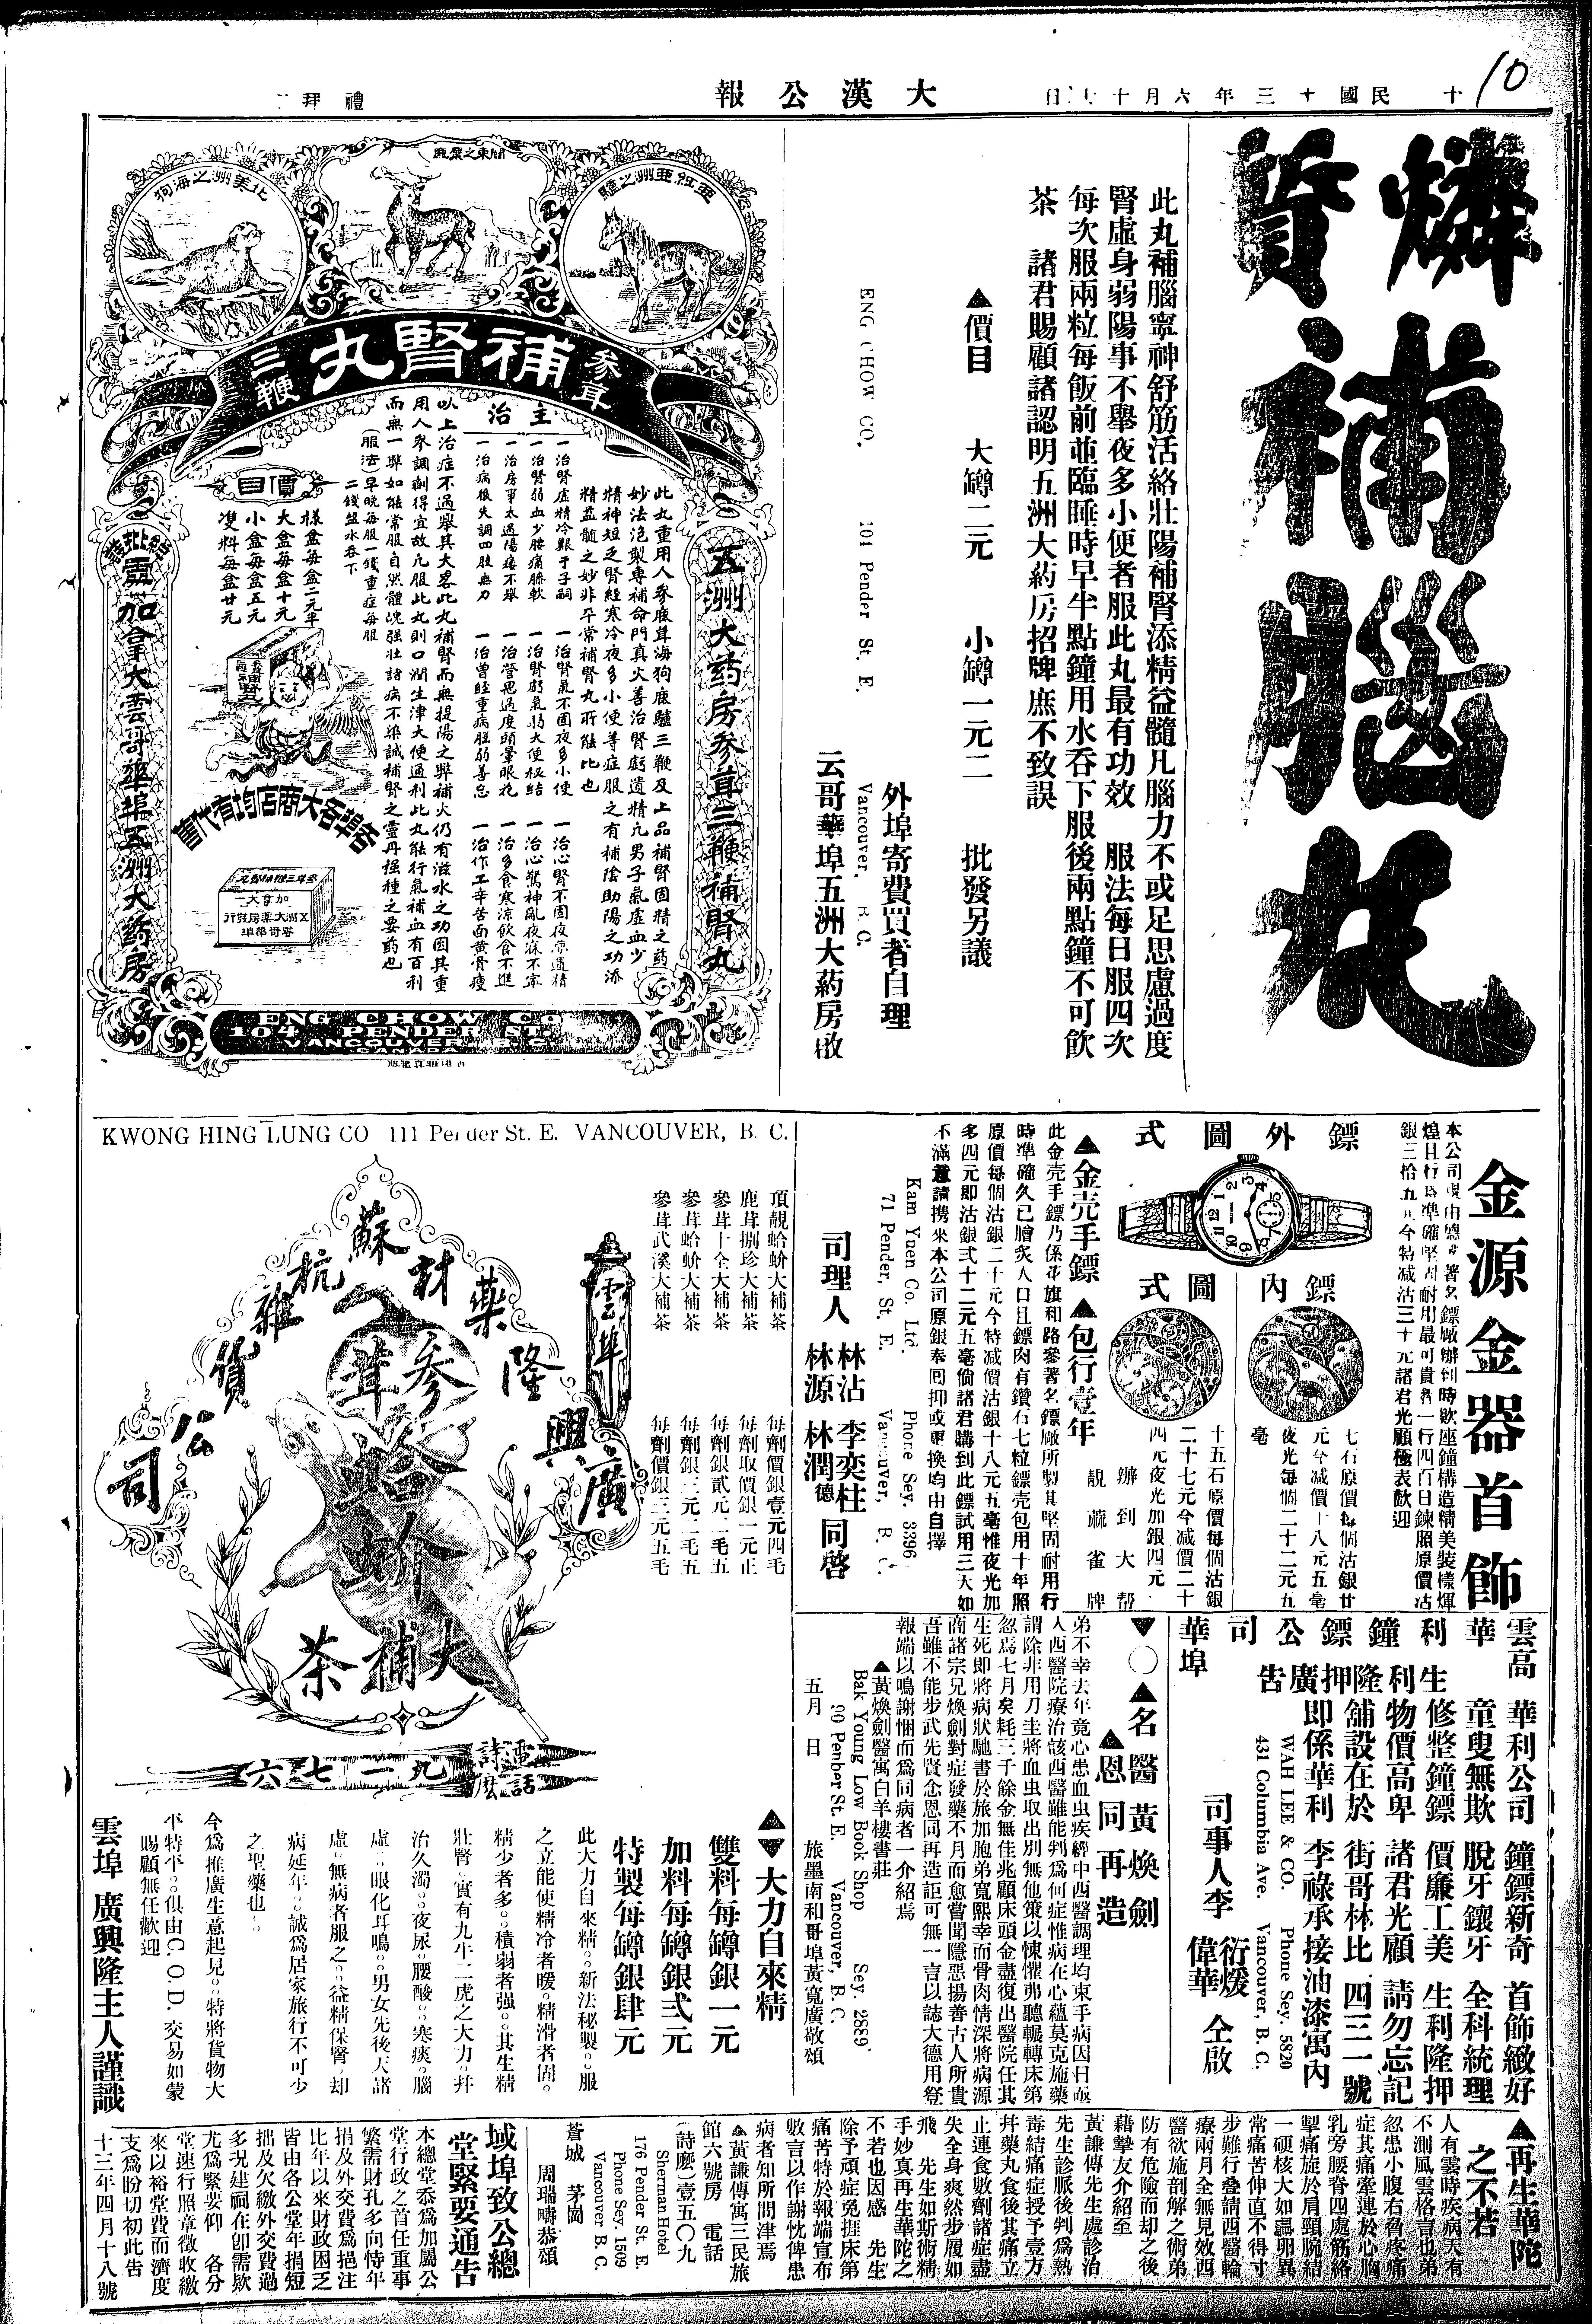 十 民國十三年六月十七日
大漢公報
禮拜二
10
燐質補腦丸
此丸補腦寧神舒筋活絡壯陽補腎添精益髓凡腦力不或足思慮過度
腎虛身弱陽事不舉夜多小便者服此丸最有功效 服法每日服四次
每次服兩粒每飯前並臨睡時早半點鐘用水吞下服後兩點鐘不可飲
茶 諸君賜顧諸認明五洲大葯房招牌庶不致誤
▲價目 大罇二元 小罇一元二 批發另議
外埠寄費買者自理
ENG CHOW CO. 104 Pender St. E. Vancouver. B. C.
云哥華埠五洲大葯房啟
亞紅亞洲之驢
關東之梅鹿
北美洲之海狗
參茸補腎丸三鞭
五洲大葯房參茸三鞭補腎丸
此丸重用人參鹿茸海狗鹿驢三鞭及上品補腎固精之葯
妙法泡製專補命門真火善治腎虧遺精凢男子氣虛血少
精神短乏腎經寒冷夜多小便等症服之有補陰助陽之功添
精益髓之妙非平常補腎丸所能比也
主治
一治腎虛精冷艱于子嗣 一治腎氣不固夜多小便 一治心腎不固夜夢遺精
一治腎弱血少腰痛膝軟 一治腎虧氣弱大便秘結 一治心驚神亂夜寐不寧
一治房事太過陽痿不舉 一治營思過度頭暈眼花 一治多食寒涼飲食不進
一治病後失調四肢無力 一治曾經重病尫弱善忘 一治作工辛苦面黃骨瘦
以上治症不過舉其大畧此丸補腎而無提陽之弊補火仍有滋水之功因其重
用人參調劑得宜故凢服此丸則口潤生津大便通利此丸能行氣補血有百利
而無一弊如能常服自然體魄强壯諸病不染誠補腎之靈丹强種之要葯也
(服法)早晚每服一錢重症每服
二錢盐水吞下
價目
樣盒每盒二元半
大盒每盒十元
小盒每盒五元
雙料每盒廿元
各埠各大商店均有代售
加拿大
五洲大藥房發行
雲哥華埠
加拿大雲哥華埠五洲大葯房
ENG CHOW Co
104 PENDER ST.
VANCOUVER, B. C.
CANADA
金源金器首飾
銀三拾九元今特減沽三十元諸君光顧極表歡迎
鏢外圖式
鏢內圖式
七石原價每個沽銀廿
元今减價十八元五毫
夜光每個二十二元五
毫
十五石原價每個沽銀
二十七元今減價二十
四元夜光加銀四元
辦到大帮
靚蔴雀牌
▲金壳手鏢 ▲包行壹年
此金壳手鏢乃係花旗和路參著名鏢廠所製其堅固耐用行
時準確久已膾炙人口且鏢肉有鑽石七粒鏢壳包用十年照
原價每個沽銀二十元今特减價沽銀十八元五毫惟夜光加
多四元即沽銀弍十二元五毫倘諸君購到此鏢試用三天如
不滿意請携來本公司原銀奉囘抑或更換均由自擇
Kam Yuen Co. Ltd. Phone Sey. 3396
71 Pender, St. E. Vancouver, B. C.
司理人 林沾 李奕柱
林源 林潤德 同啓
KWONG HING LUNG CO 111 Pender St. E. VANCOUVER, B. C.
頂靚蛤蚧大補茶 每劑價銀壹元四毛
鹿茸捌珍大補茶 每劑取價銀一元正
參茸十全大補茶 每劑銀貳元二毛五
參茸蛤蚧大補茶 每劑銀三元二毛五
參茸武溪大補茶 每劑價銀三元五毛
雲埠
廣興隆藥材蘇杭雜貨公司
參茸蛤蚧大補茶
電話 詩麽 九一七六
▲▼大力自來精
雙料每罇銀一元
加料每罇銀弍元
特製每罇銀肆元
此大力自來精。。新法秘製。。服
之立能使精冷者暖。精滑者固。
精少者多。。積弱者强。。其生精
壯腎。實有九牛二虎之大力。幷
治久濁。。夜尿。腰酸。。寒痰。腦
虛。。眼花耳鳴。。男女先後天諸
虛。無病者服之。。益精保腎。却
病延年。。誠爲居家旅行不可少
之聖藥也。。
今爲推廣生意起見。。特將貨物大
平特平。。俱由C. O. D. 交易如蒙
賜顧無任歡迎
雲埠 廣興隆主人謹識
雲高華埠 華利鐘鏢公司
生利隆押廣告
華利公司 鐘鏢新奇 首飾緻好
童叟無欺 脫牙鑲牙 全科統理
修整鐘鏢 價廉工美 生利隆押
物價高卑 諸君光顧 請勿忘記
舖設在於 街哥林比 四三一號
即係華利 李祿承接油漆寓內
WAH LEE & CO. Phone Sey. 5820
431 Columbia Ave. Vancouver, B. C.
司事人李 衍煖 偉華 仝啟
▼〇▲名醫黃煥劍
▲恩同再造
弟不幸去年竟心患血虫疾經中西醫調理均束手病因日亟
入西醫院療治該西醫雖能判爲何症惟病在心蘊莫克施藥
謂除非用刀圭將血虫取出別無他策以悚懼弗聽輾轉床第
忽焉七月矣耗三千餘金無佳兆顧床頭金盡復出醫院任其
生死即將病狀馳書於旅加胞弟寬熙幸而骨肉情深將病源
南諸宗兄煥劍對症發藥不月而愈嘗聞隱惡揚善古人所貴
吾雖不能步武先賢念恩同再造詎可無一言以誌大德用登
報端以鳴謝悃而爲同病者一介紹焉
▲黃煥劍醫寓白羊樓書莊
Bak Young Low Book Shop Sey. 2889
90 Penber St. E. Vancouver, B. C.
五月 日 旅墨南和哥埠黃寬廣敬頌
▲再生華陀之不若
人有霎時疾病天有
不測風雲格言也弟
忽患小腹右脅疼痛
症其痛牽連於心胸
乳旁腰脊四處筋絡
掣痛旋於肩頸腕結
一硬核大如鷄卵異
常痛苦伸直不得寸
步難行叠請西醫輪
療兩月全無見效西
醫欲施剖解之術弟
防有危險而却之後
藉摯友介紹至
黃謙傳先生處診治
先生診脈後判爲熱
毒結痛症授予壹方
幷藥丸食後其痛立
止連食數劑諸症盡
失全身爽然步履如
飛 先生如斯術精
手妙真再生華陀之
不若也因感 先生
除予頑症免捱床第
痛苦特於報端宣布
數言以作謝忱俾患
病者知所問津焉
▲黃謙傳寓三民旅
館六號房 電話
(詩廳)壹五〇九
Sherman Hotel
176 Pender St. E.
Phone Sey. 1509
Vancouver B. C.
蒼城 茅岡 周瑞疇恭頌
域埠致公總堂緊要通告
本總堂忝爲加屬公
堂行政之首任重事
繁需財孔多向恃年
捐及外交費爲挹注
比年以來財政困乏
皆由各公堂年捐短
拙及欠繳外交費過
多現建祠在卽需欺
尤爲緊要仰 各分
堂速行照章徵收繳
來以裕堂費而濟度
支爲盼切切此告
十三年四月十八號